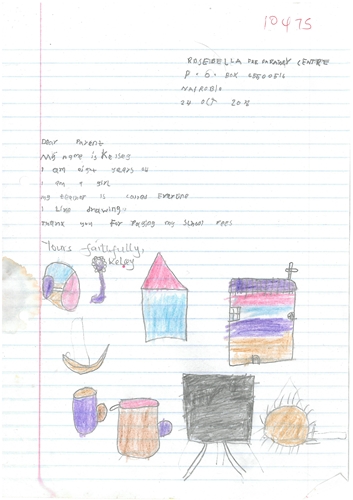 10475
ROSEBELLA PRE PARATORY CENTRE
P. O. BOX
NAIROBI
24 OCT
Dear Parent
My name is Kelsey
I am eight years old
I am a girl
my teacher is
I like drawing.
Thank you for Paying my School Fees
Yours faithfully,
Kelsey